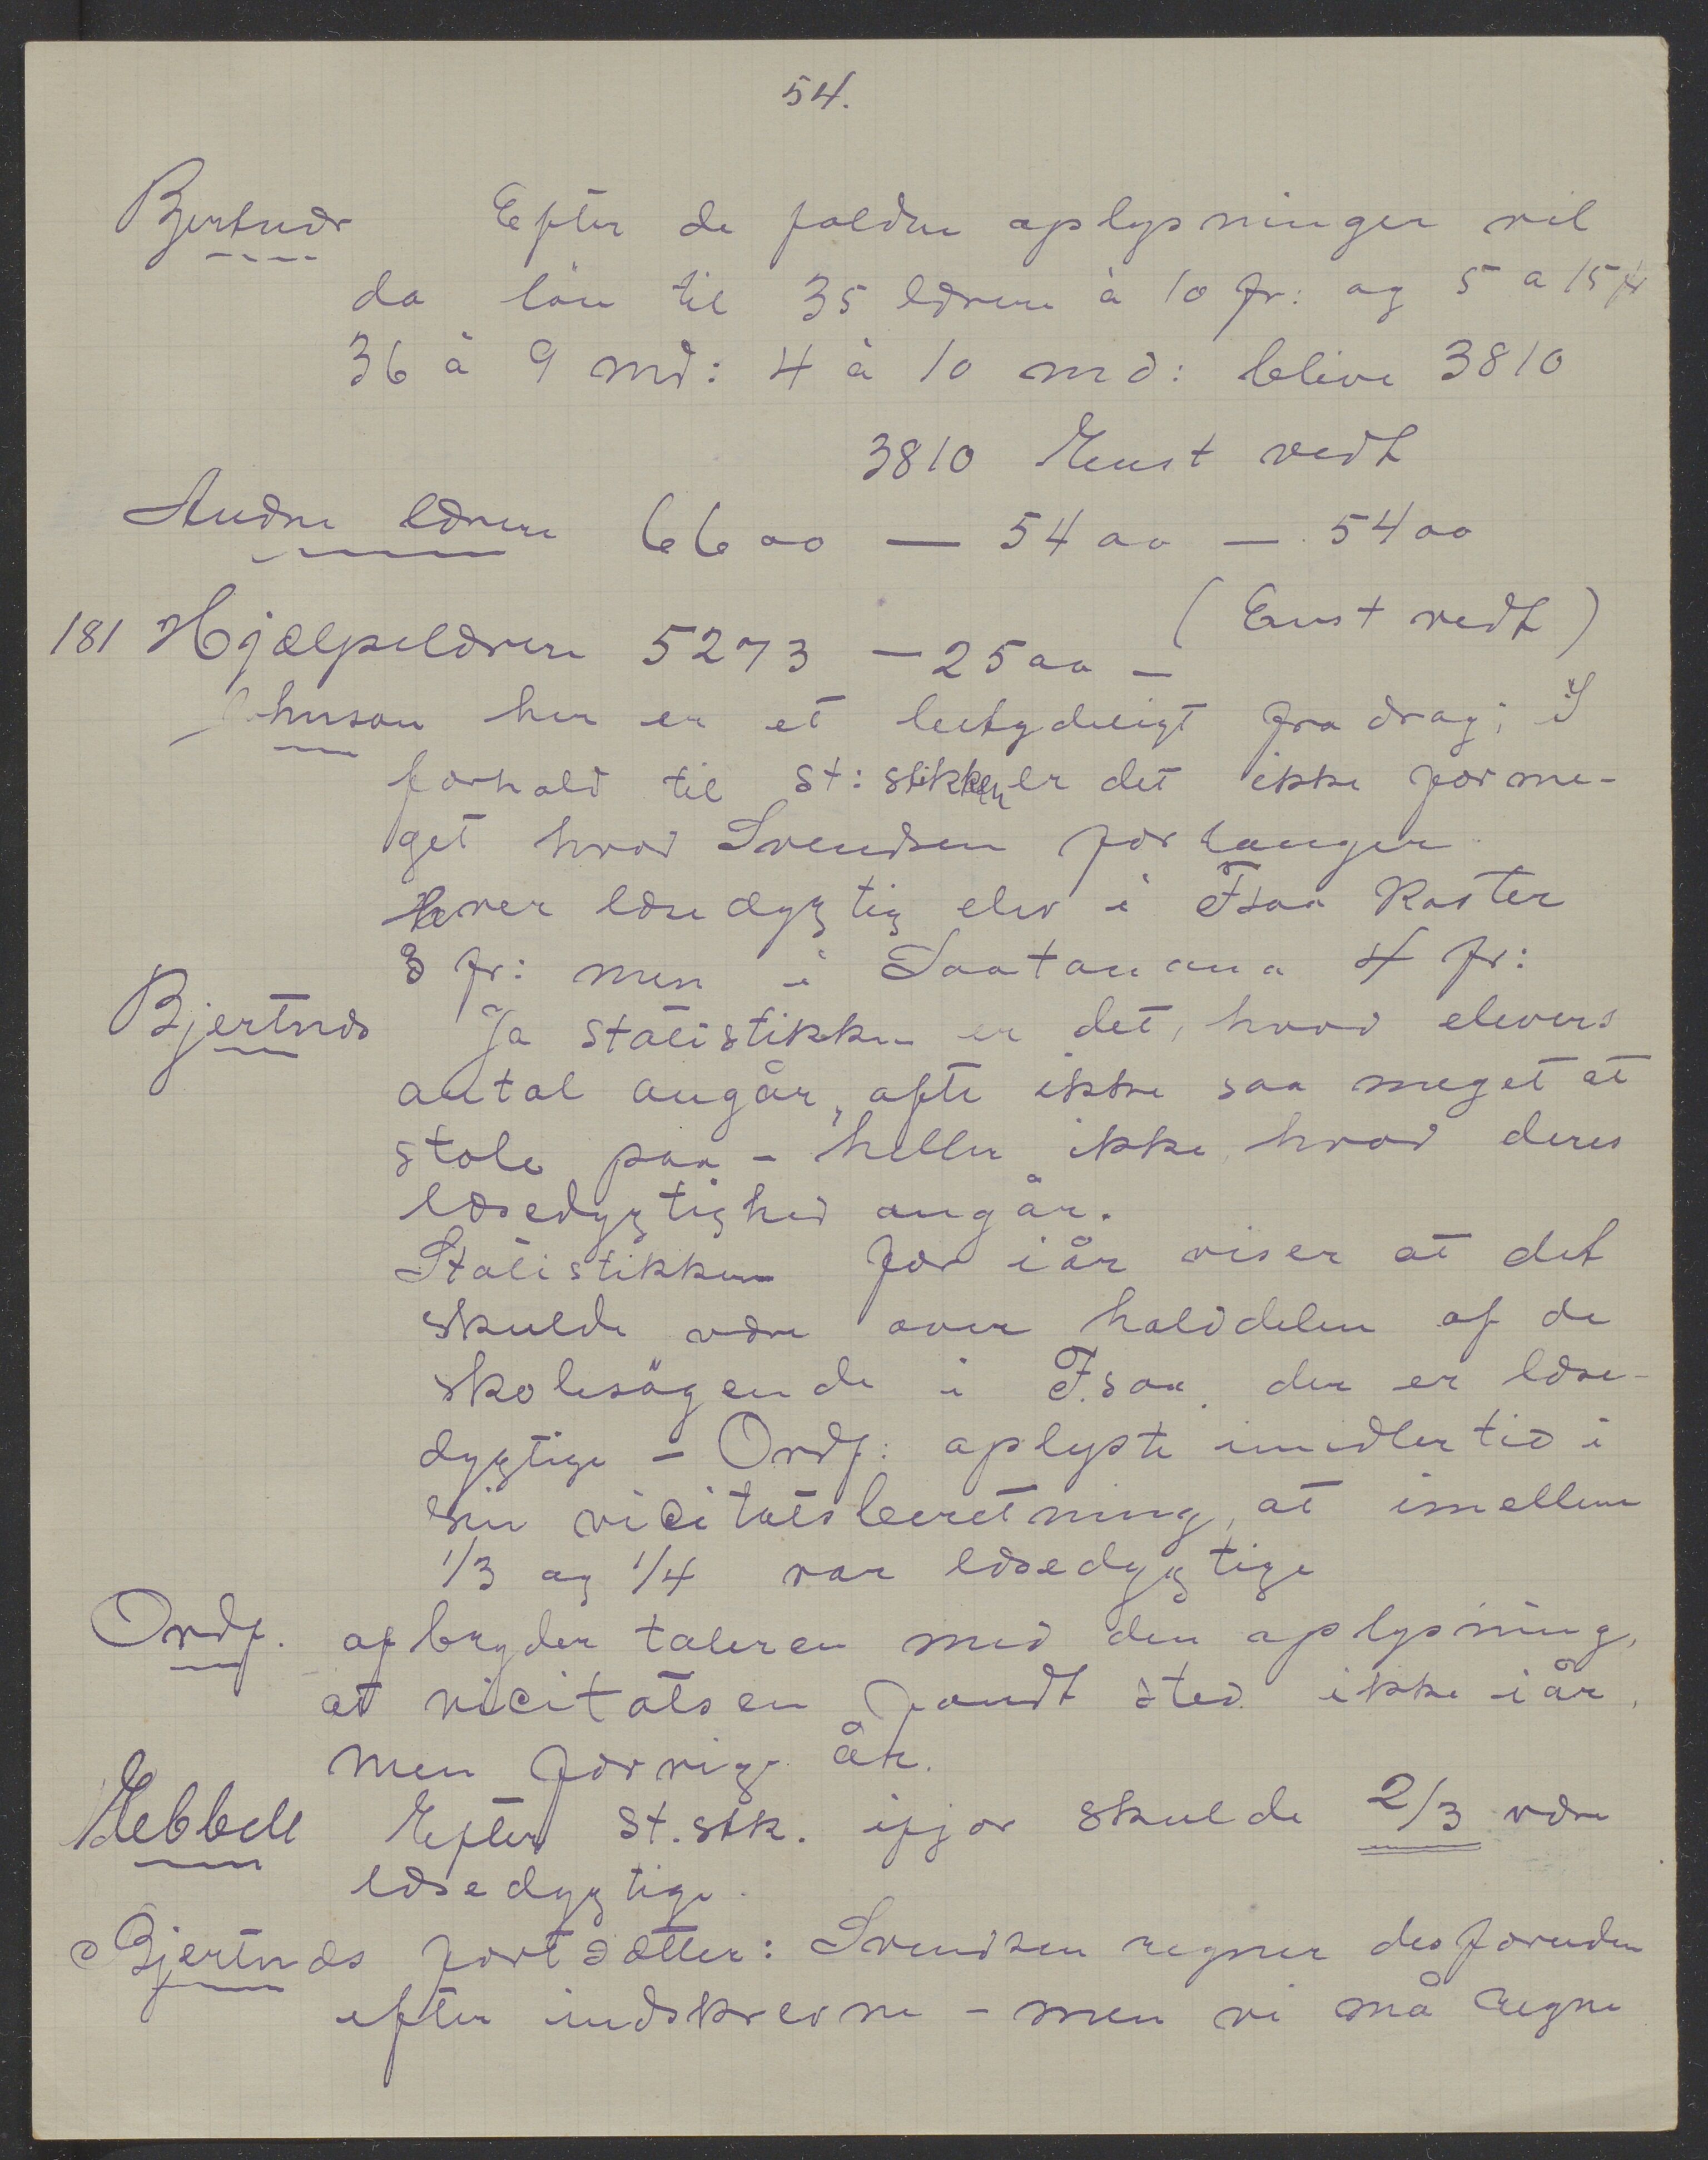 54.
Bjertnæs Efter de faldne oplysninger vil
da løn til 35 lærere à 10 fr: og 5 a 15 fr
36 à 9 md: 4 à 10 md: blive 3810
3810 Enst vedt
Andre lærere 6600 — 5400 — 5400
(Enst vedt)
181 Hjælpelærere 5273 — 2500 —
Johnson her er et betydeligt fradrag; I
forhold til st:stikken er det ikke forme-
get hvad Svendsen forlanger
hver læsedygtig elev i Fsoa koster
3 fr: men i Soatanana 4 fr:
Bjertnæs Ja statistikken er det, hvad elevers
antal angår, ofte ikke saa meget at
stole paa - heller ikke hvad deres
læsedygtighed angår.
Statistikken for iår viser at det
skulde være over halvdelen af de
skolesøgende i F.soa der er læse-
dygtige - Ordf: oplyste imidlertid i
sin vicitatsberetning, at imellem
1/3 og 1/4 var læsedygtige
Ordf. afbryder taleren med den oplysning,
at vicitatsen fandt sted ikke iår,
men forrige år.
Æebbell Efter st.stk. ifjor skulde 2/3 være
læsedygtige.
Bjertnæs fortsætter: Svendsen regner desforuden
efter indskrevne - men vi må regne